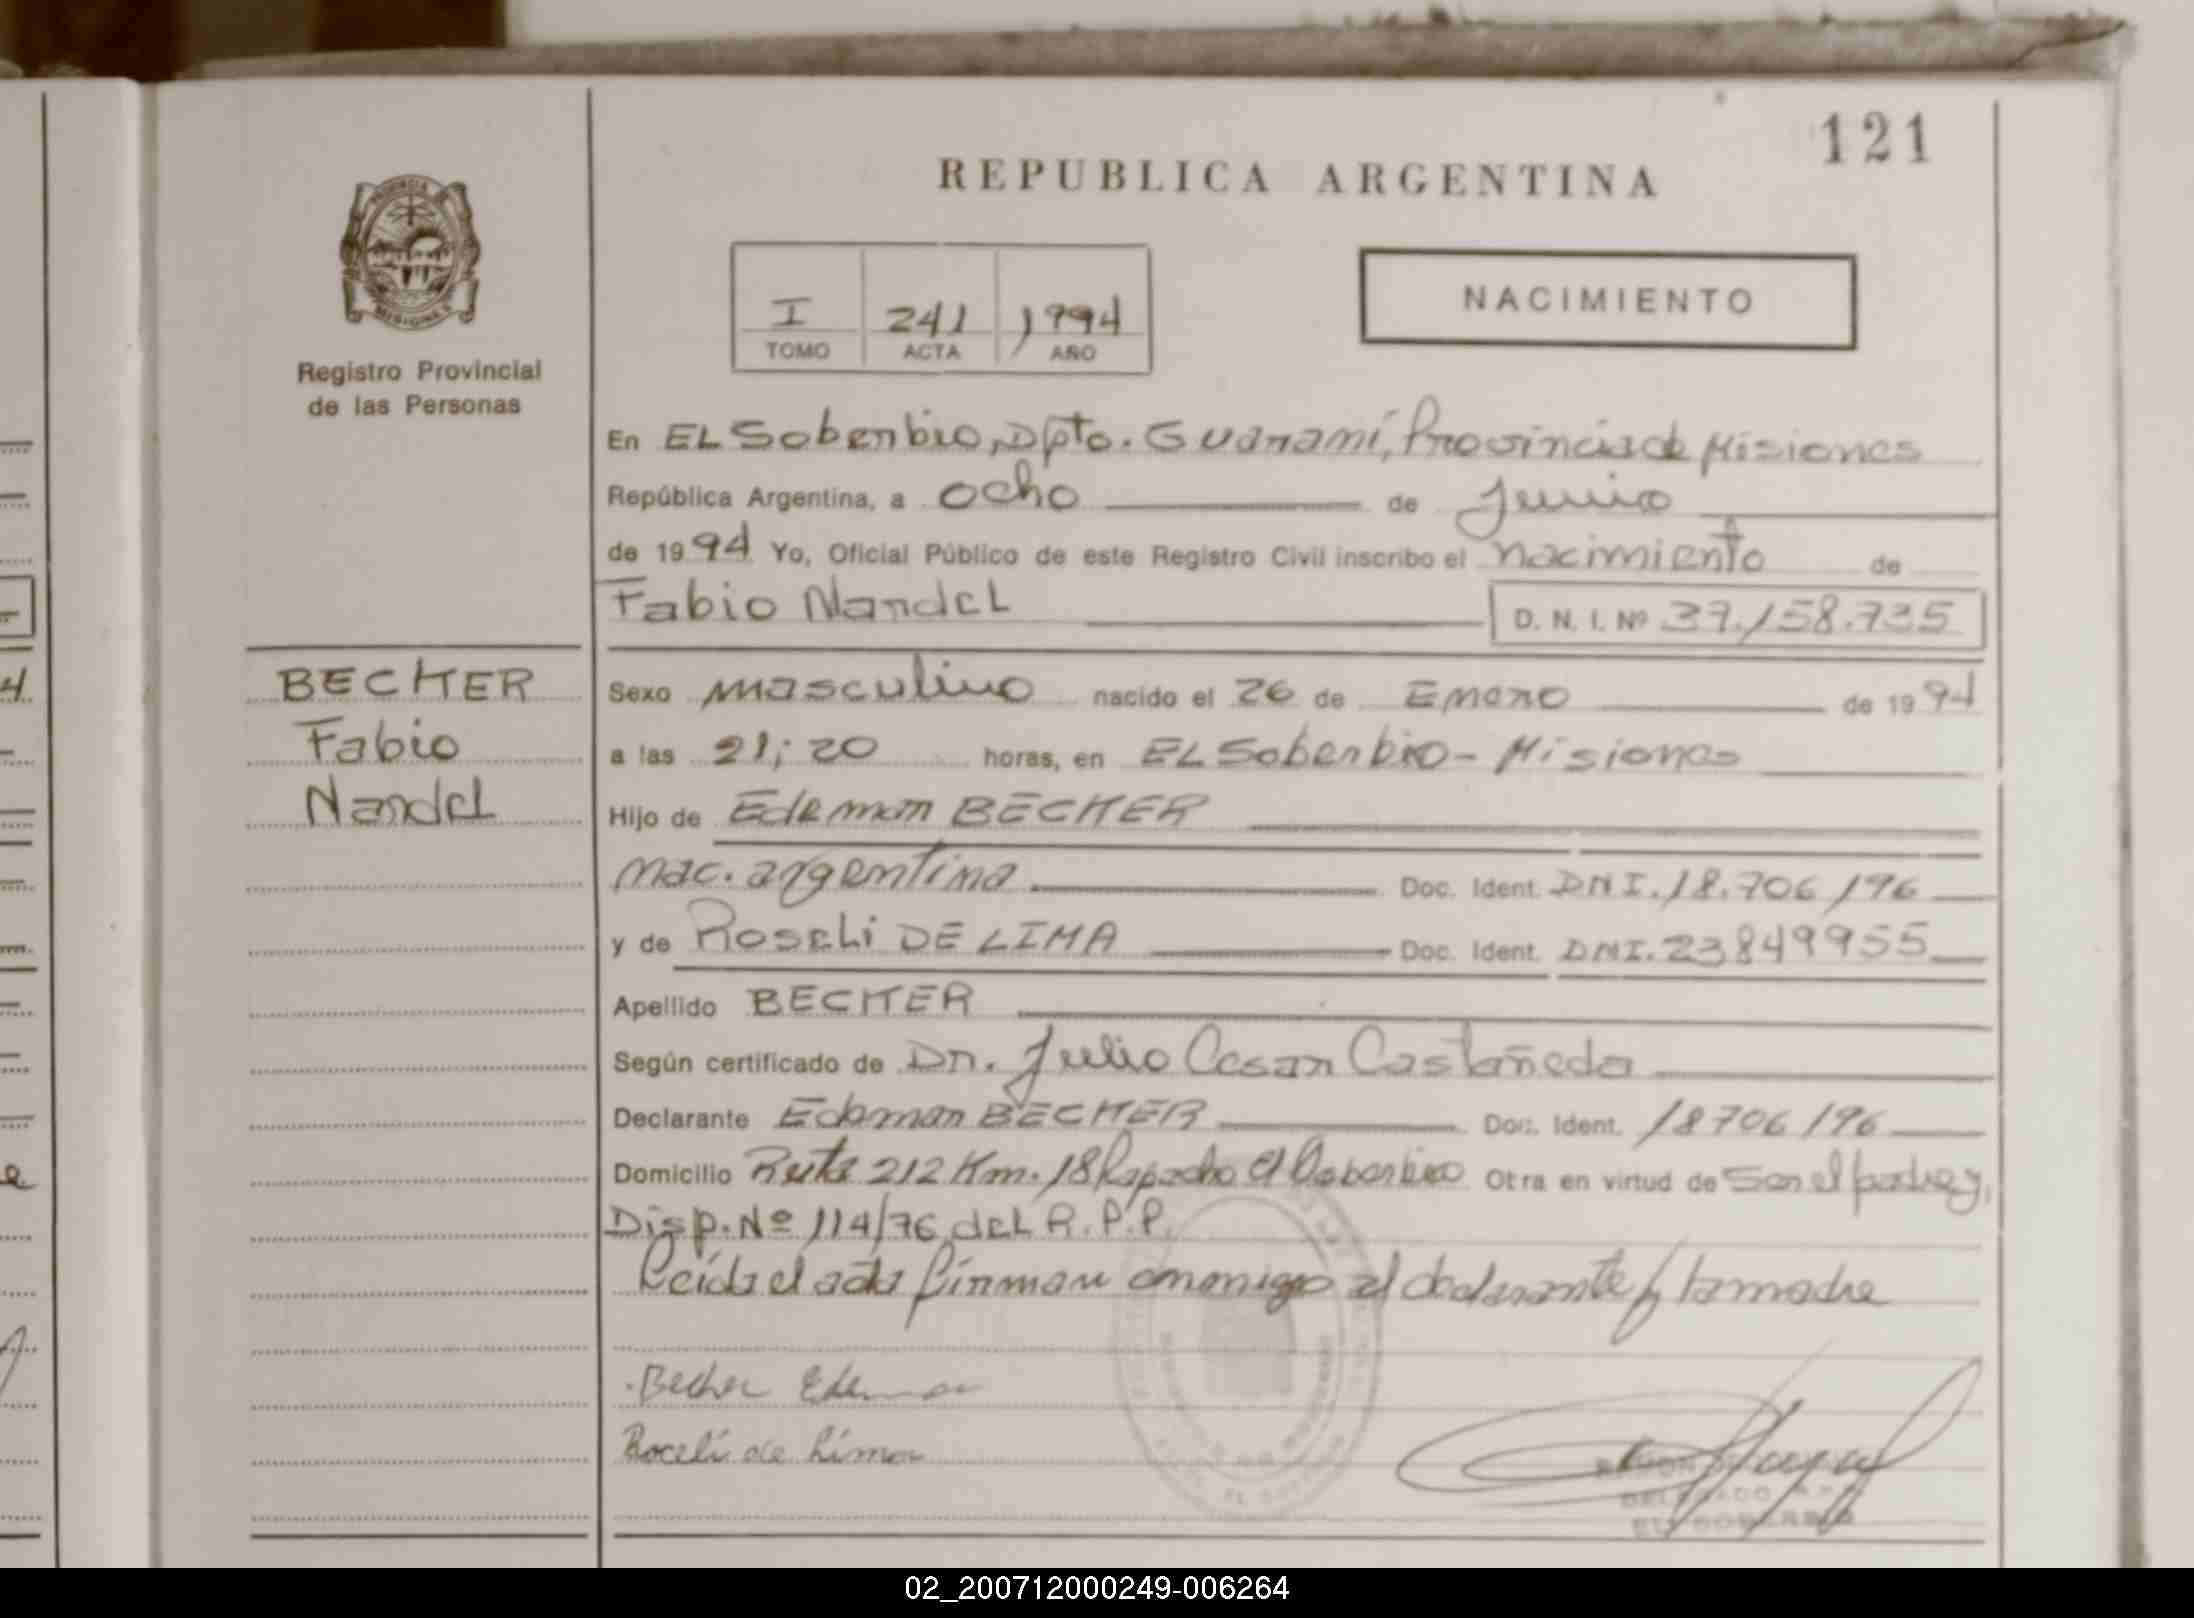 121
REPUBLICA ARGENTINA
PROVINCIA
MISIONES
Registro Provincial
de las Personas
I 241 1994
TOMO ACTA AÑO
NACIMIENTO
En EL Soberbio, Dpto. Guaraní, Provincia de Misiones
República Argentina, a ocho de Junio
de 1994 Yo, Oficial Público de este Registro Civil inscribo el nacimiento de
Fabio Nardel D. N. I. Nº 37.158.735
BECKER
Fabio
Nardel
Sexo masculino nacido el 26 de Enero de 1994
a las 21; 20 horas, en EL Soberbio - Misiones
Hijo de Edemar BECKER
nac. argentina Doc. Ident. DNI. 18.706196
y de Roseli DE LIMA Doc. Ident. DNI. 23849955
Apellido BECKER
Según certificado de Dr. Julio Cesar Castañeda
Declarante Edemar BECKER Doc. Ident. 18706196
Domicilio Ruta 212 Km. 18 El Soberbio Otra en virtud de Ser el padre y
Disp. Nº 114/76 del R.P.P.
Leída el acta firman conmigo el declarante y la madre
Becker Edemar
Roceli de Lima
RAMON
DELEGADO
EL SOBERBIO
02_200712000249-006264